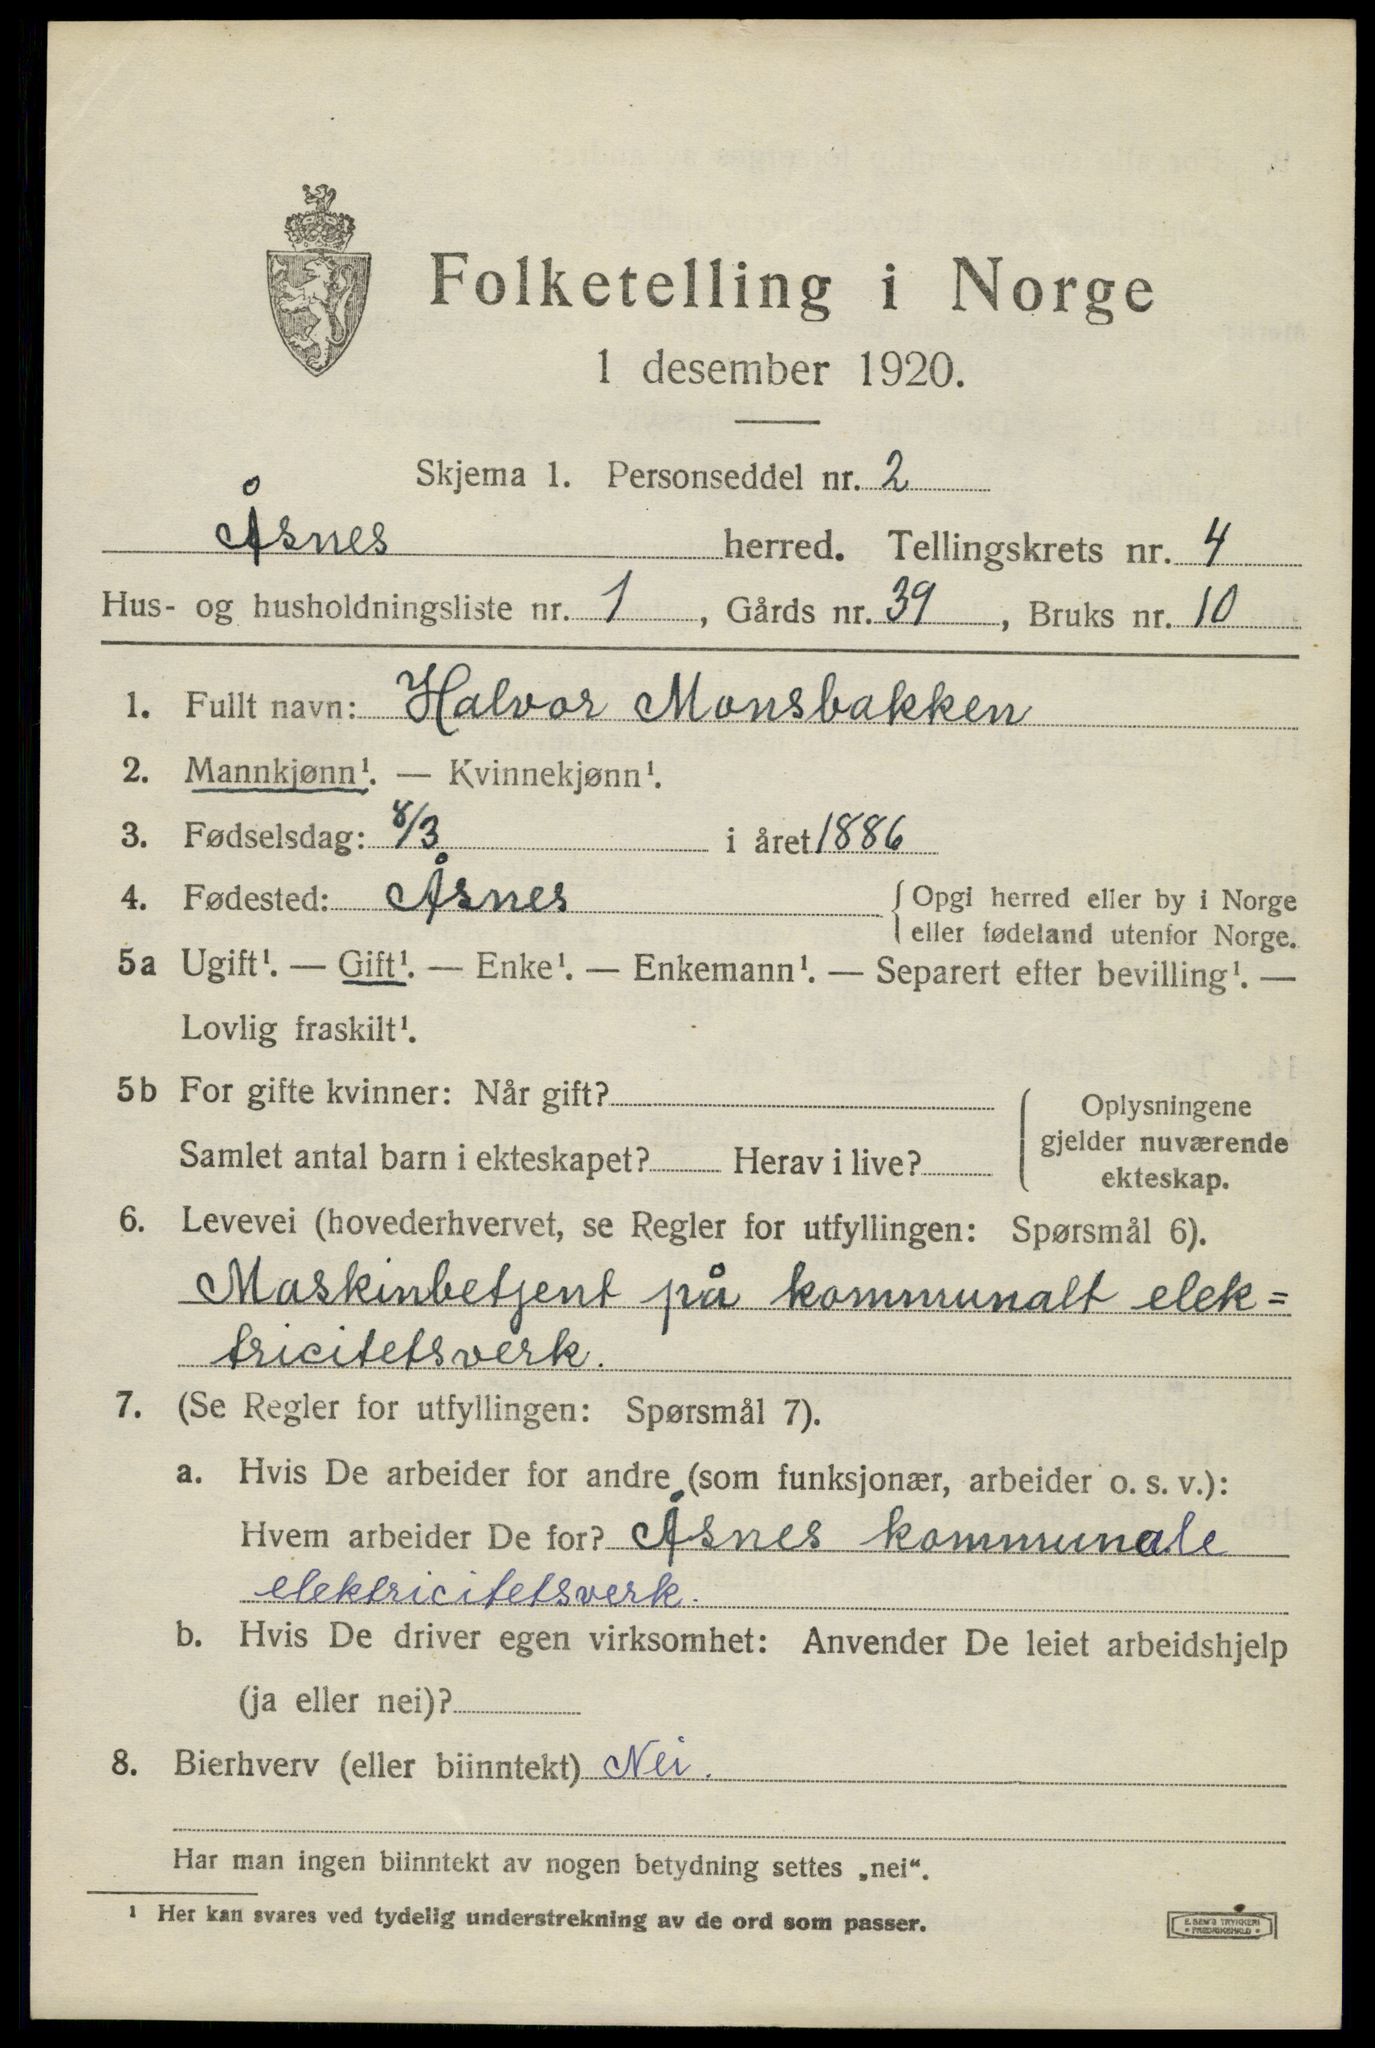 Folketelling i Norge
1 desember 1920.
Skjema 1. Personseddel nr. 2
Åsnes herred. Tellingskrets nr. 4
Hus- og husholdningsliste nr. 1, Gårds nr. 39, Bruks nr. 10
1. Fullt navn: Halvor Monsbakken
2. Mannkjønn¹. — Kvinnekjønn¹.
3. Fødselsdag: 8/3 i året 1886
4. Fødested: Åsnes { Opgi herred eller by i Norge
eller fødeland utenfor Norge.
5a Ugift¹. — Gift¹. — Enke¹. — Enkemann¹. — Separert efter bevilling¹. —
Lovlig fraskilt¹.
5b For gifte kvinner: Når gift?
Samlet antal barn i ekteskapet? Herav i live?
Oplysningene
gjelder nuværende
ekteskap.
6. Levevei (hovederhvervet, se Regler for utfyllingen: Spørsmål 6).
Maskinbetjent på kommunalt elek=
tricitetsverk.
7. (Se Regler for utfyllingen: Spørsmål 7).
a. Hvis De arbeider for andre (som funksjonær, arbeider o. s. v.):
Hvem arbeider De for? Åsnes kommunale
elektricitetsverk.
b. Hvis De driver egen virksomhet: Anvender De leiet arbeidshjelp
(ja eller nei)?
8. Bierhverv (eller biinntekt) Nei.
Har man ingen biinntekt av nogen betydning settes „nei“.
¹ Her kan svares ved tydelig understrekning av de ord som passer.
E. SEM'S TRYKKERI
FREDRIKSHALD